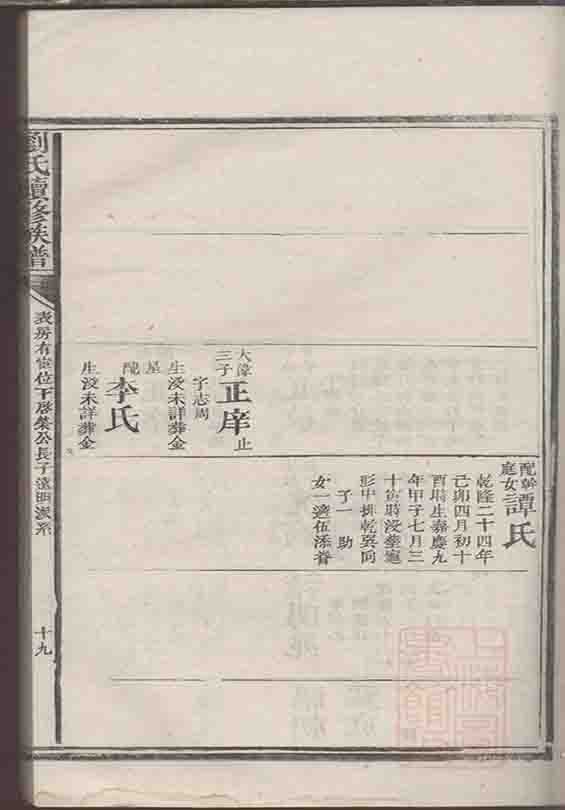 劉氏續修族譜
表房有宦位下啓榮公長子遠明派系
十九
大漳
三子
正庠
止
字志周
生没未詳葬金
星
配
李氏
生没未詳葬金
配幹
庭女
譚氏
乾隆二十四年
己卯四月初十
酉時生嘉慶九
年甲子七月三
十寅時没葬窀
形中排乾巽向
子一 助
女一適伍添眷